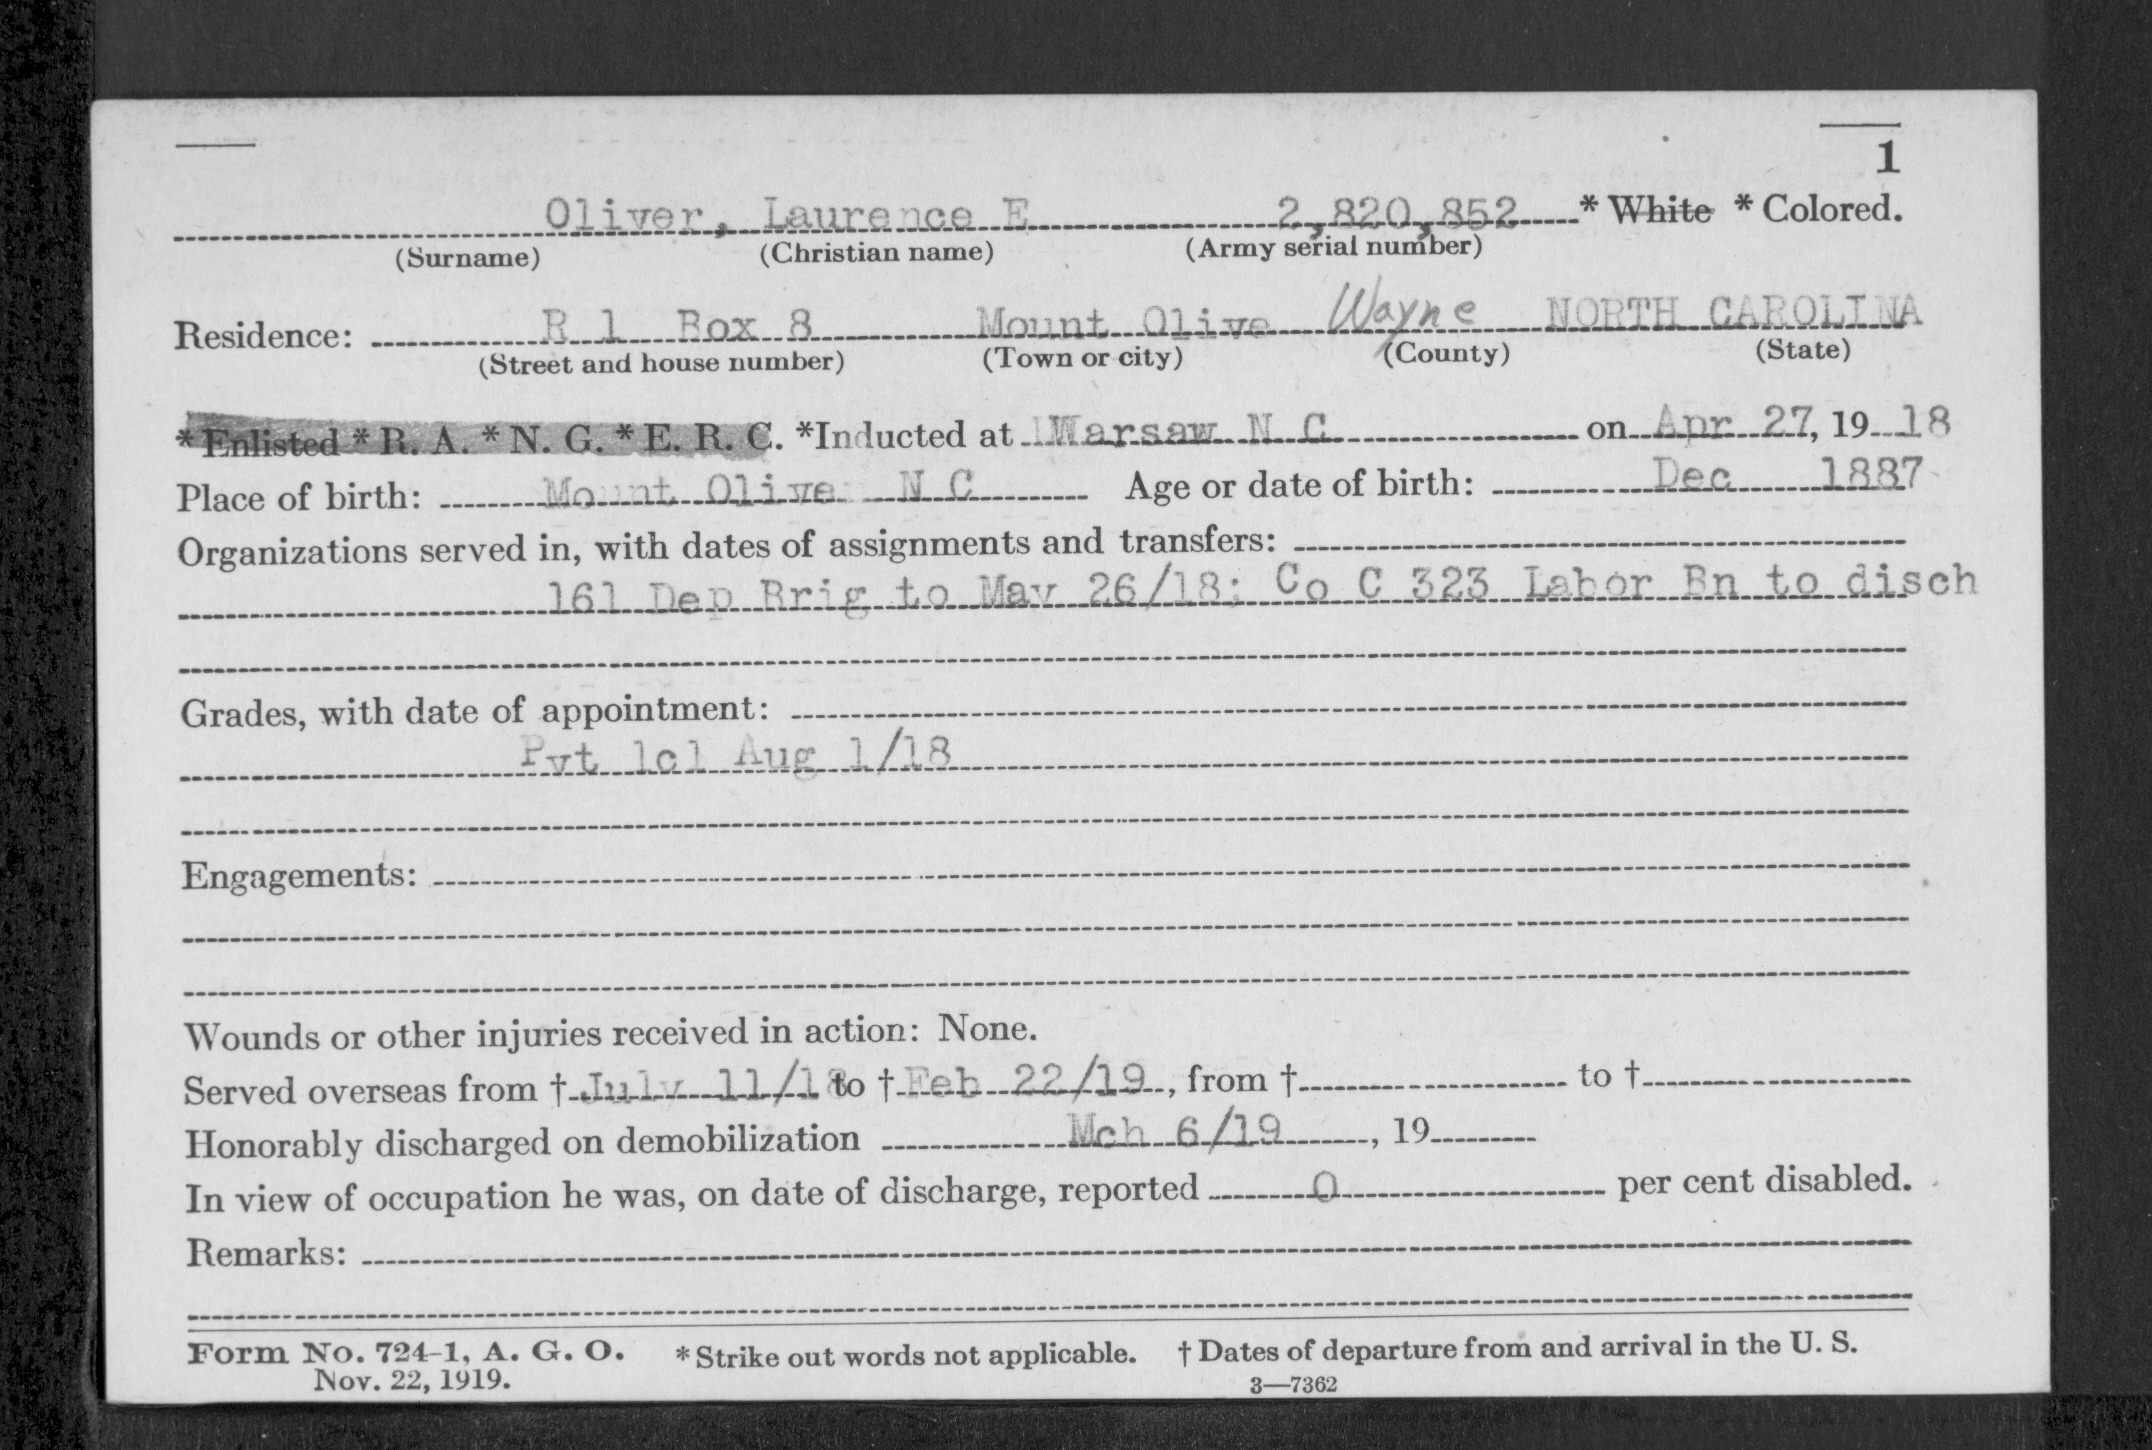 1
Oliver, Laurence E 2,820,852 * White * Colored.
(Surname) (Christian name) (Army serial number)
Residence: R 1 Box 8 Mount Olive Wayne NORTH CAROLINA
(Street and house number) (Town or city) (County) (State)
* Enlisted * R. A. * N. G. * E. R. C. *Inducted at Warsaw N C on Apr 27, 19 18
Place of birth: Mount Olive N C Age or date of birth: Dec 1887
Organizations served in, with dates of assignments and transfers:
161 Dep Brig to May 26/18; Co C 323 Labor Bn to disch
Grades, with date of appointment:
Pvt 1cl Aug 1/18
Engagements:
Wounds or other injuries received in action: None.
Served overseas from † July 11/18 to † Feb 22/19, from † to †
Honorably discharged on demobilization Mch 6/19, 19
In view of occupation he was, on date of discharge, reported 0 per cent disabled.
Remarks:
Form No. 724-1, A. G. O. *Strike out words not applicable. † Dates of departure from and arrival in the U. S.
Nov. 22, 1919. 3—7362